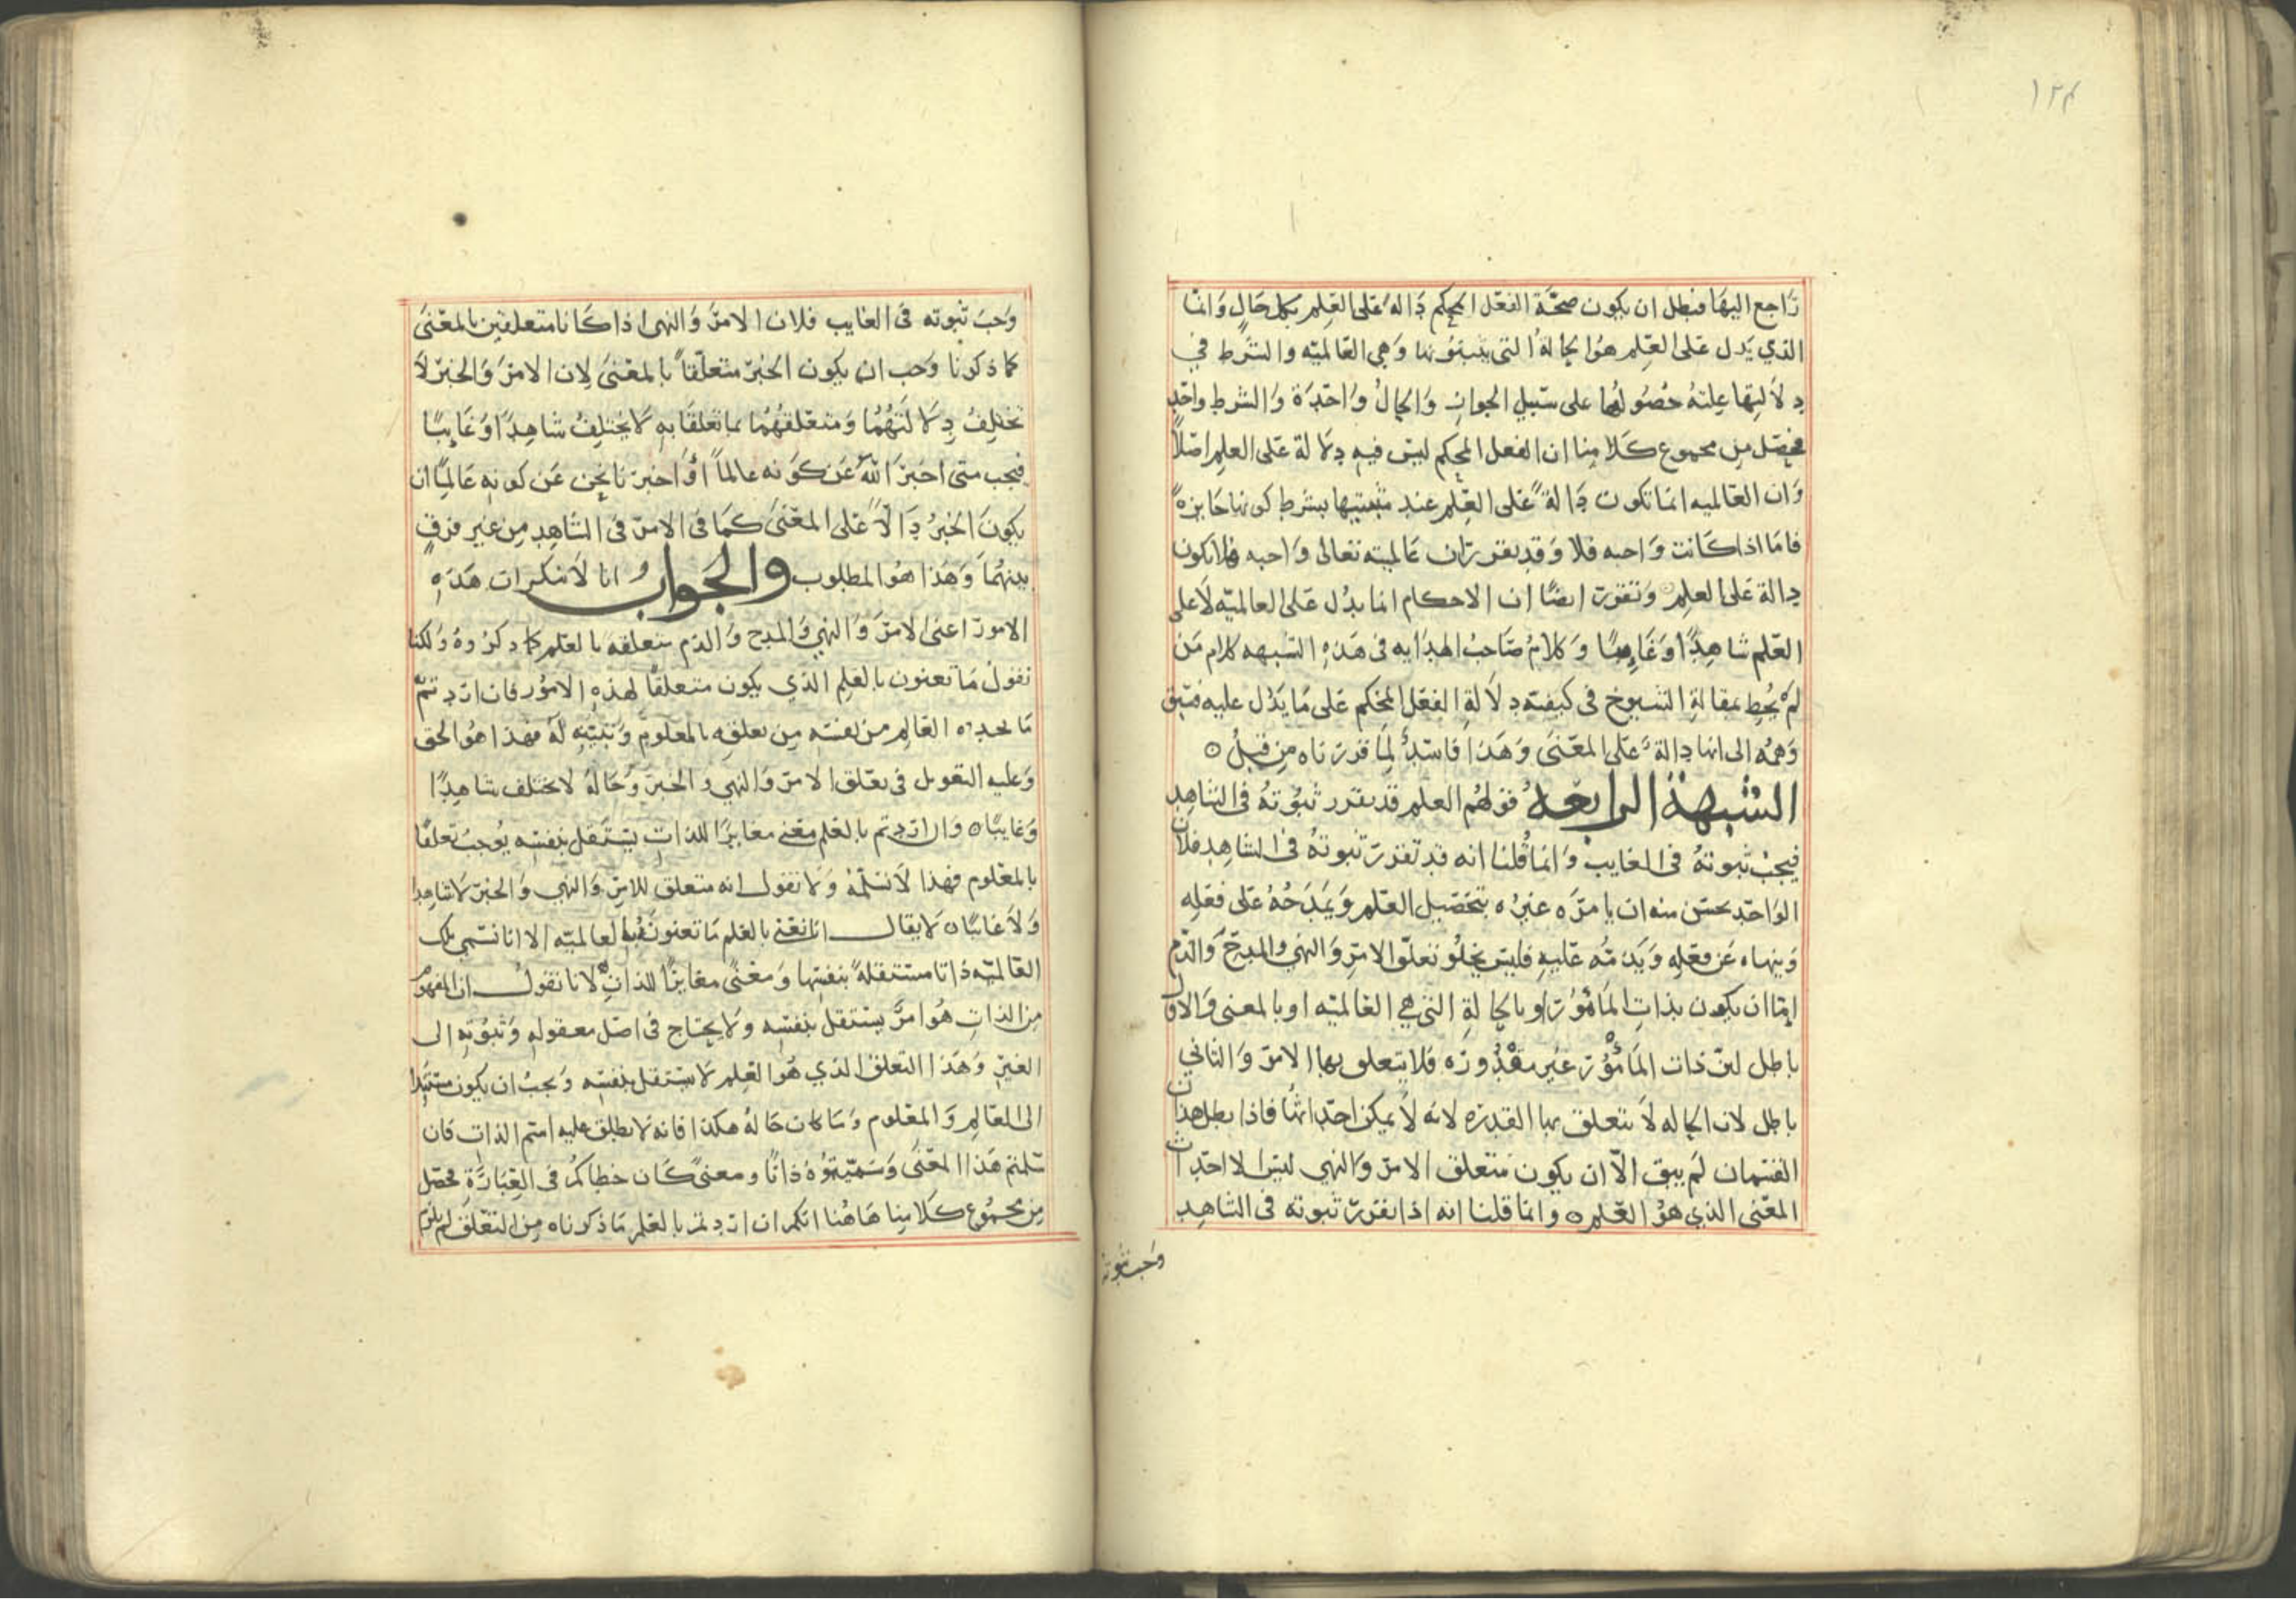 ١٢٤
راجع اليها فبطل ان يكون صحة الفعل المحكم دالة على العلم بكل حال وانما
الذي يدل على العلم هو الحالة التي يثبتونها وهي العالميه والشرط في
دلالتها عليه حصولها على سبيل الجواز والحال واحدة والشرط واحد
فحصل من مجموع كلامنا ان الفعل المحكم ليس فيه دلالة على العلم اصلاً
وان العالميه انما تكون دالة على العلم عند مثبتيها بشرط كونها جايزه
فاما اذا كانت واجبه فلا وقد تقرر ان عالميته تعالى واجبه فلا تكون
دالة على العلم وتقرر ايضًا ان الاحكام انما يدل على العالميه لا على
العلم شاهدًا وغايبًا وكلام صاحب الهدايه في هذه الشبهه كلام من
لم يُحط بمقالة الشيوخ في كيفيته دلالة الفعل المحكم على ما يدل عليه فسبق
وهمه الى انها دالة على المعنى وهذا فاسد لما قررناه من قبل ه
الشبهة الرابعه قولهم العلم قد تقرر ثبوته في الشاهد
فيجب ثبوته في الغايب وانما قلنا انه قد تقرر ثبوته في الشاهد فلان
الواحد يحسن منه ان يامره غيره بتحصيل العلم ويمدحه على فعله
وينهاه عن فعله ويذمه عليه فليس يخلو تعلق الامر والنهي والمدح والذم
اما ان يكون بذات المأمور او بالحالة التي هي العالميه او بالمعنى والاول
باطل لان ذات المأمور غير مقدوره فلا يتعلق بها الامر والثاني
باطل لان الحاله لا تتعلق بها القدره لانه لا يمكن احداثها فاذا بطل هذان
القسمان لم يبق الا ان يكون متعلق الامر والنهي ليس الا احداث
المعنى الذي هو العلم ه وانما قلنا انه اذا تقرر ثبوته في الشاهد
وجب ثبوته
وجب ثبوته في الغايب فلان الامر والنهي اذا كانا متعلقين بالمعنى
كما ذكرنا وجب ان يكون الخبر متعلقاً بالمعنى لان الامر والخبر لا
تختلف دلالتهما ومتعلقهما بما تعلقا به لا يختلف شاهدًا وغايبًا
فيجب متى اخبر الله عن كونه عالماً او اخبرنا نحن عن كونه عالمًا ان
يكون الخبر دالاً على المعنى كما في الامر في الشاهد من غير فرق
بينهما وهذا هو المطلوب والجواب انا لا ننكر ان هذه
الامور اعنى الامر والنهي والمدح والذم متعلقه بالعلم كما ذكروه ولكنا
نقول ما تعنون بالعلم الذي يكون متعلقاً لهذه الامور فان اردتم
ما يجده العالم من نفسه من تعلقه بالمعلوم وتبيّنه له فهذا هو الحق
وعليه التعويل في تعلق الامر والنهي والخبر وحاله لا يختلف شاهدًا
وغايبًا ه وان اردتم بالعلم معنى مغايرًا للذات يستقل بنفسه يوجب تعلقًا
بالمعلوم فهذا لا نسلمه ولا نقول انه متعلق للامر والنهي والخبر لا شاهدا
ولا غايبًا ه لا يقال انا نعنى بالعلم ما تعنونه بالعالميه الا انا نسمي تلك
العالميه ذاتا مستقلة بنفسها ومعنًى مغايرًا للذات لانا نقول ان المفهوم
من الذات هو امر يستقل بنفسه ولا يحتاج في اصل معقوله وثبوته الى
الغير وهذا التعلق الذي هو العلم لا يستقل بنفسه ويجب ان يكون مستندا
الى العالم والمعلوم وما كان حاله هكذا فانه لا يطلق عليه اسم الذات فان
سلمتم هذا المعنى وسميتموه ذاتًا ومعنىً كان خطاكم في العبارة فحصل
من مجموع كلامنا هاهنا انكم ان اردتم بالعلم ما ذكرناه من التعلق لم يلزم